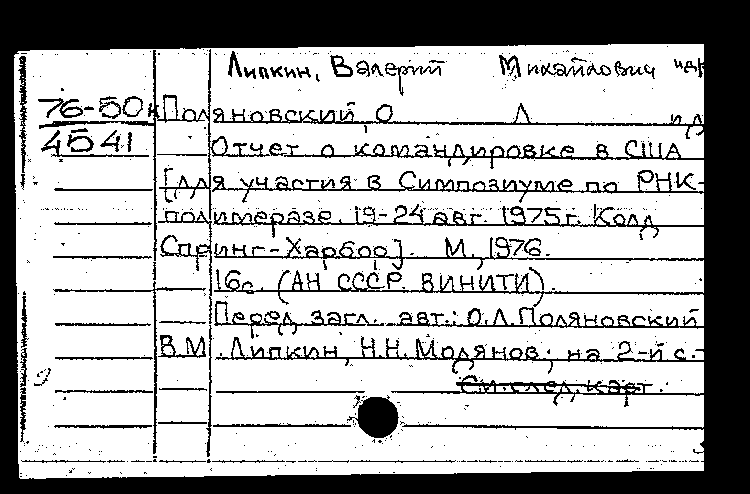 Липкин, Валерий Михайлович и др
76-50к Поляновский, О Л и др
4541 Отчет о командировке в США
[для участия в Симпозиуме по РНК-
полимеразе. 19-24 авг. 1975 г. Колд
Спринг-Харбор]. М., 1976.
16с. (АН СССР. ВИНИТИ).
Перед загл. авт.: О.Л.Поляновский
В.М. Липкин, Н.Н. Модянов; на 2-й с.-
См. след. карт.